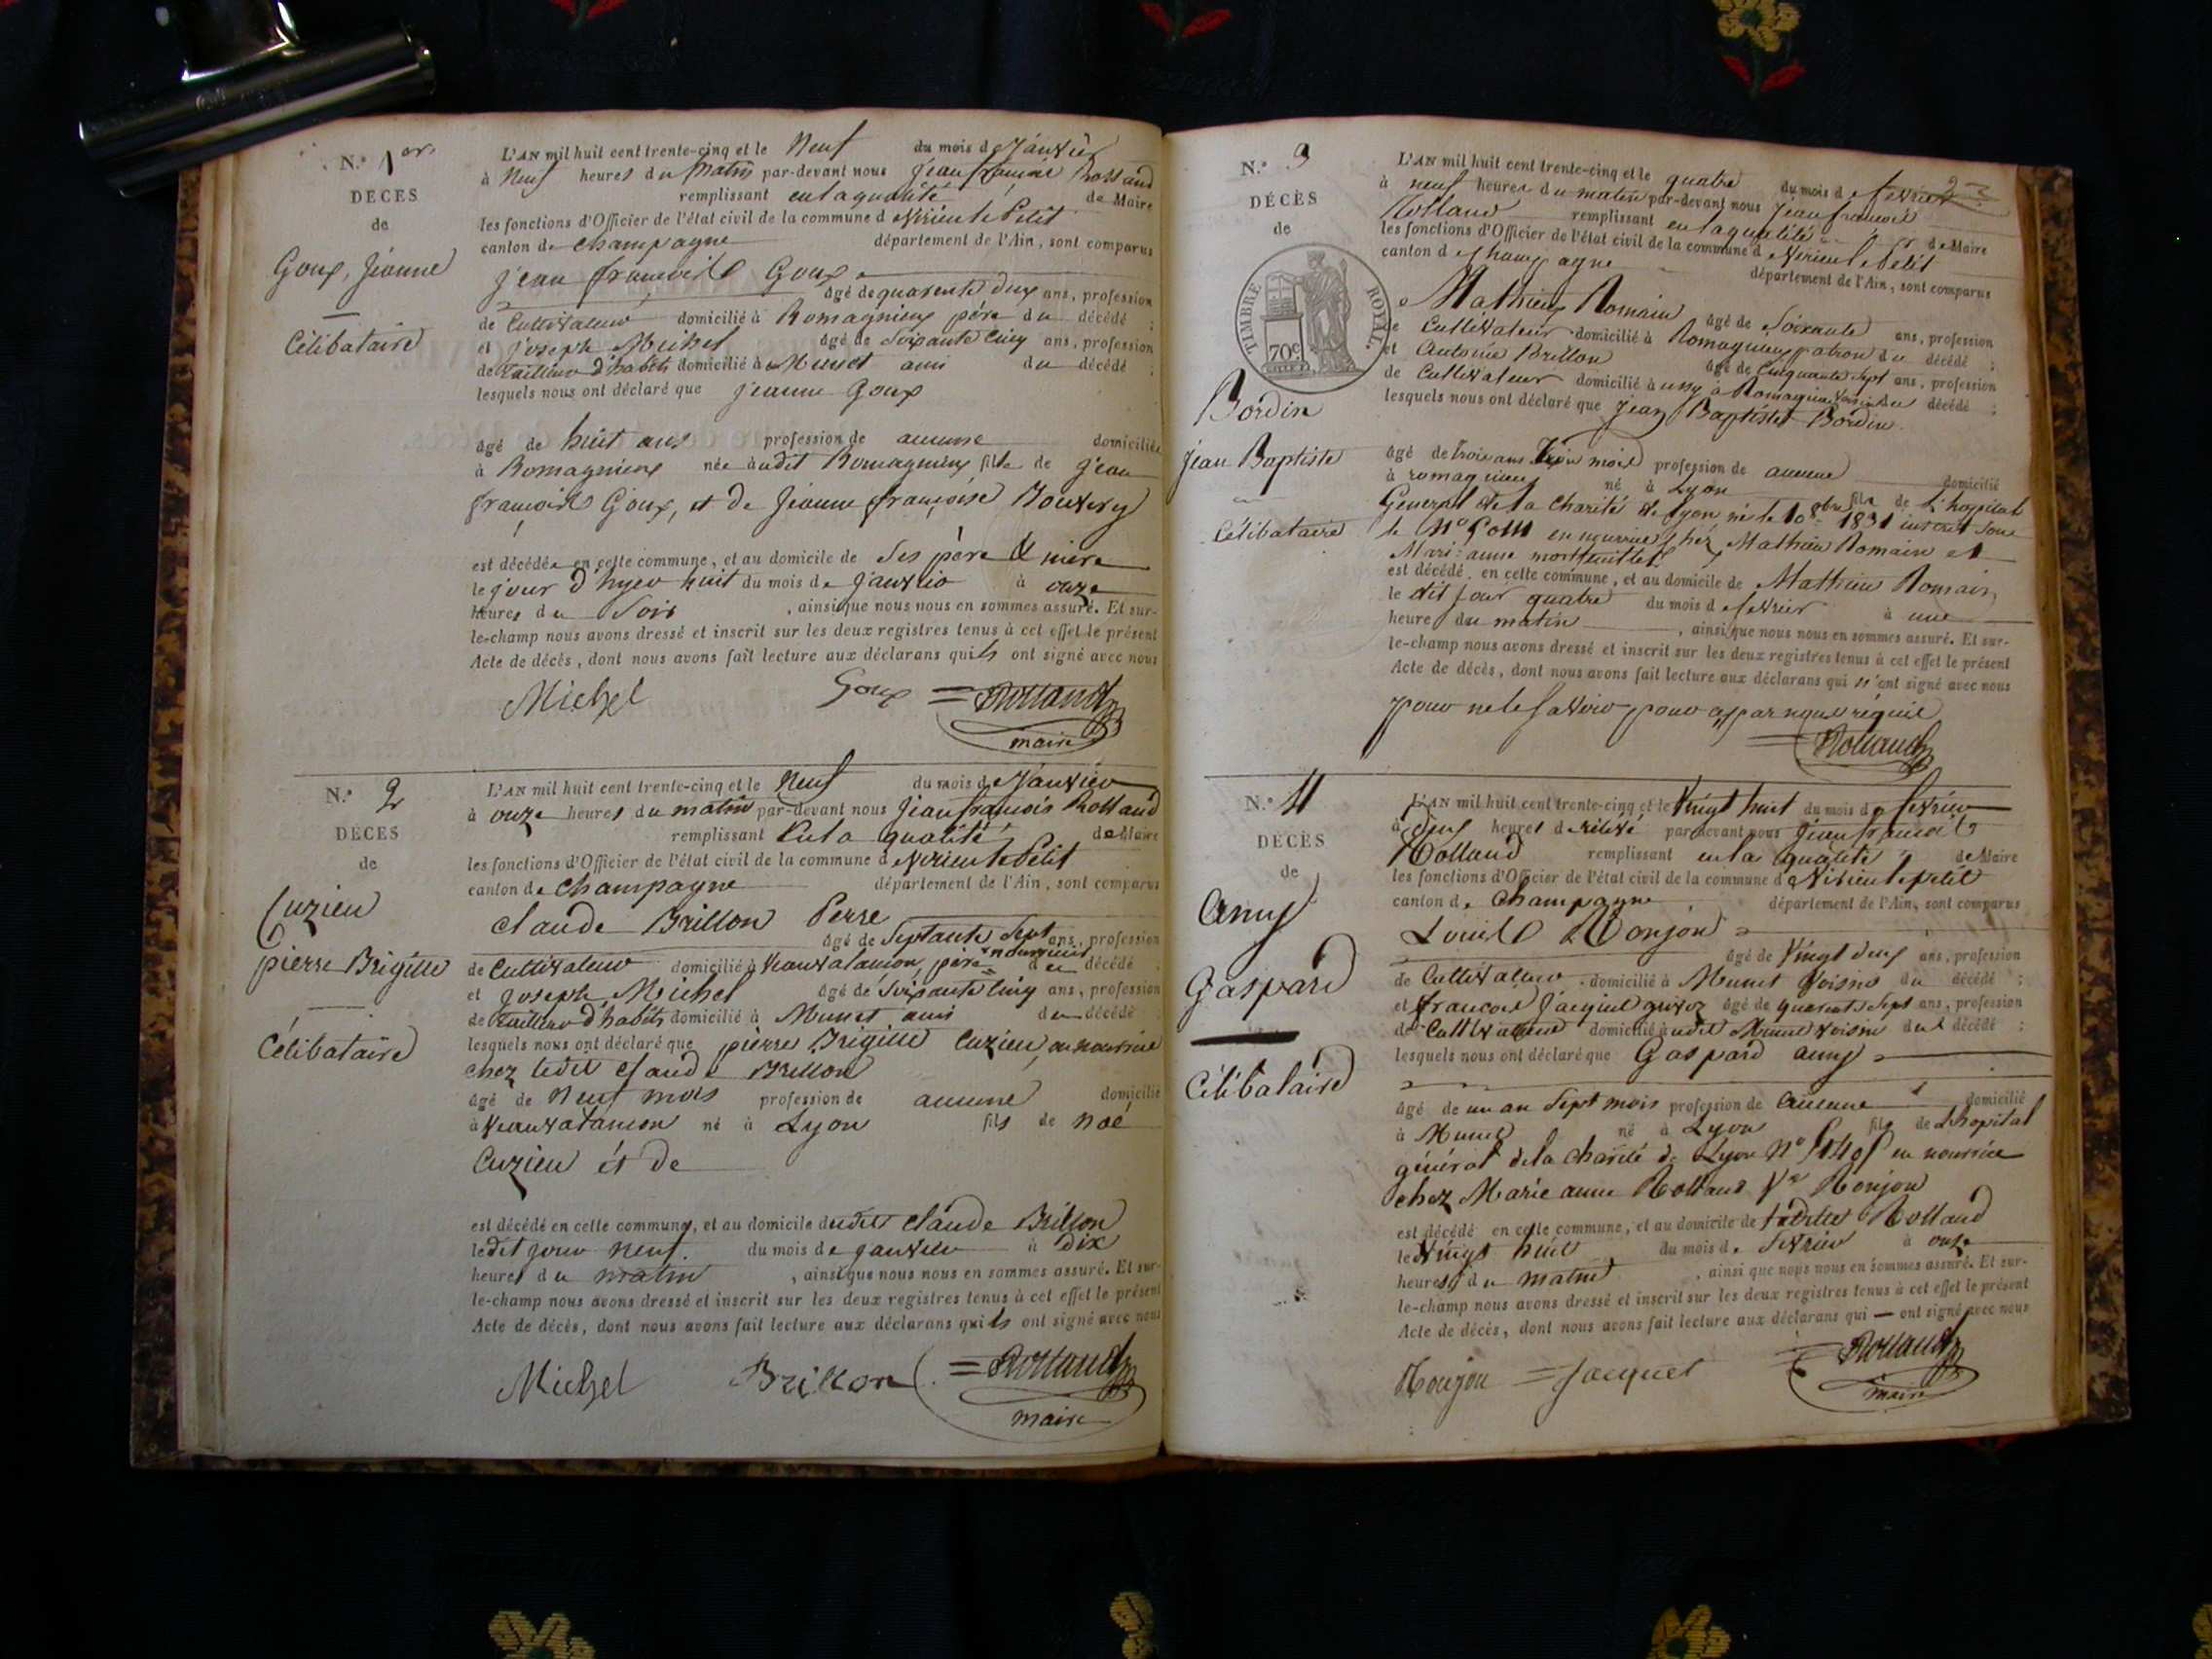 N.° 1er
DÉCÈS
de
Goux, Jeanne
Célibataire
L'AN mil huit cent trente-cinq et le Neuf du mois de Janvier
à Neuf heures du matin par-devant nous Jean françois Rolland
remplissant en la qualité de Maire
les fonctions d'Officier de l'état civil de la commune de Virieu le Petit
canton de Champagne département de l'Ain, sont comparus
jean françois Goux
âgé de quarente deux ans, profession
de Cultivateur domicilié à Romagnieux père du décédé ;
et joseph Michel âgé de Soixante Cinq ans, profession
de Tailleur d'habits domicilié à Munet ami du décédé ;
lesquels nous ont déclaré que jeanne Goux
âgé de huit ans profession de aucune domiciliée
à Romagnieux née audit Romagnieux fille de jean
françois Goux, et de Jeanne françoise Bouvery
est décédée en cette commune, et au domicile de Ses père & mère
le jour d'hyer huit du mois de janvier à onze
heures du Soir , ainsi que nous nous en sommes assuré. Et sur-
le-champ nous avons dressé et inscrit sur les deux registres tenus à cet effet le présent
Acte de décès, dont nous avons fait lecture aux déclarans qui ls ont signé avec nous
Michel Goux Rolland
maire
N.° 2
DÉCÈS
de
Cuzieu
pierre Brigille
Célibataire
L'AN mil huit cent trente-cinq et le Neuf du mois de Janvier
à onze heures du matin par-devant nous Jean françois Rolland
remplissant En la qualité de Maire
les fonctions d'Officier de l'état civil de la commune de Virieu le Petit
canton de Champagne département de l'Ain, sont comparus
claude Brillon Perre
âgé de Septante Sept ans, profession
de Cultivateur domicilié à père nourricier du décédé ;
et joseph Michel âgé de Soixante Cinq ans, profession
de Tailleur d'habits domicilié à Munet ami du décédé ;
lesquels nous ont déclaré que pierre Brigille Cuzieu, en nourrice
chez ledit claude Brillon
âgé de Neuf mois profession de aucune domicilié
à né à Lyon fils de Noé
Cuzieu et de
est décédé en cette commune, et au domicile dudit claude Brillon
le dit jour neuf du mois de janvier à dix
heures du matin , ainsi que nous nous en sommes assuré. Et sur-
le-champ nous avons dressé et inscrit sur les deux registres tenus à cet effet le présent
Acte de décès, dont nous avons fait lecture aux déclarans qui ls ont signé avec nous
Michel Brillon Rolland
maire
N.° 3
DÉCÈS
de
TIMBRE ROYAL
70c
Bordin
Jean Baptiste
Célibataire
L'AN mil huit cent trente-cinq et le quatre du mois de fevrier
à neuf heures du matin par-devant nous Jean françois
Rolland remplissant en la qualité de Maire
les fonctions d'Officier de l'état civil de la commune de Virieu le Petit
canton de Champagne département de l'Ain, sont comparus
Mathieu Romain âgé de Soixante ans, profession
de Cultivateur domicilié à Romagnieux patron du décédé ;
et Antoine Brillon âgé de Cinquante Sept ans, profession
de Cultivateur domicilié à à Romagnieux voisin du décédé ;
lesquels nous ont déclaré que Jean Baptiste Bordin
âgé de trois ans mois profession de aucune domicilié
à romagnieux né à Lyon fils de L'hopital
General de la Charité de Lyon né le 10 8bre 1831 inscrit sous
le N° en nourrice chez Mathieu Romain et
Marie anne
est décédé en cette commune, et au domicile de Mathieu Romain
le dit jour quatre du mois de fevrier à une
heure du matin , ainsi que nous nous en sommes assuré. Et sur-
le-champ nous avons dressé et inscrit sur les deux registres tenus à cet effet le présent
Acte de décès, dont nous avons fait lecture aux déclarans qui n'ont signé avec nous
pour ne le Savoir pour par nous requis
Rolland
N.° 4
DÉCÈS
de
Anny
Gaspard
Célibataire
L'AN mil huit cent trente-cinq et le Vingt huit du mois de fevrier
à deux heures de par-devant nous Jean françois
Rolland remplissant en la qualité de Maire
les fonctions d'Officier de l'état civil de la commune de Virieu le petit
canton de Champagne département de l'Ain, sont comparus
Louis Monjon
âgé de Vingt deux ans, profession
de Cultivateur domicilié à Munet Voisin du décédé ;
et françois Jacquet âgé de quarente Sept ans, profession
de Cultivateur domicilié audit Munet voisin du décédé ;
lesquels nous ont déclaré que Gaspard Anny
âgé de un an Sept mois profession de Aucune domicilié
à Munet né à Lyon fils de L'hopital
général de la charité de Lyon N° en nourrice
chez Marie anne Rolland Ve Monjon
est décédé en cette commune, et au domicile de ladite Rolland
le Vingt huit du mois de fevrier à onze
heures du matin , ainsi que nous nous en sommes assuré. Et sur-
le-champ nous avons dressé et inscrit sur les deux registres tenus à cet effet le présent
Acte de décès, dont nous avons fait lecture aux déclarans qui — ont signé avec nous
Monjon Jacquet Rolland
maire